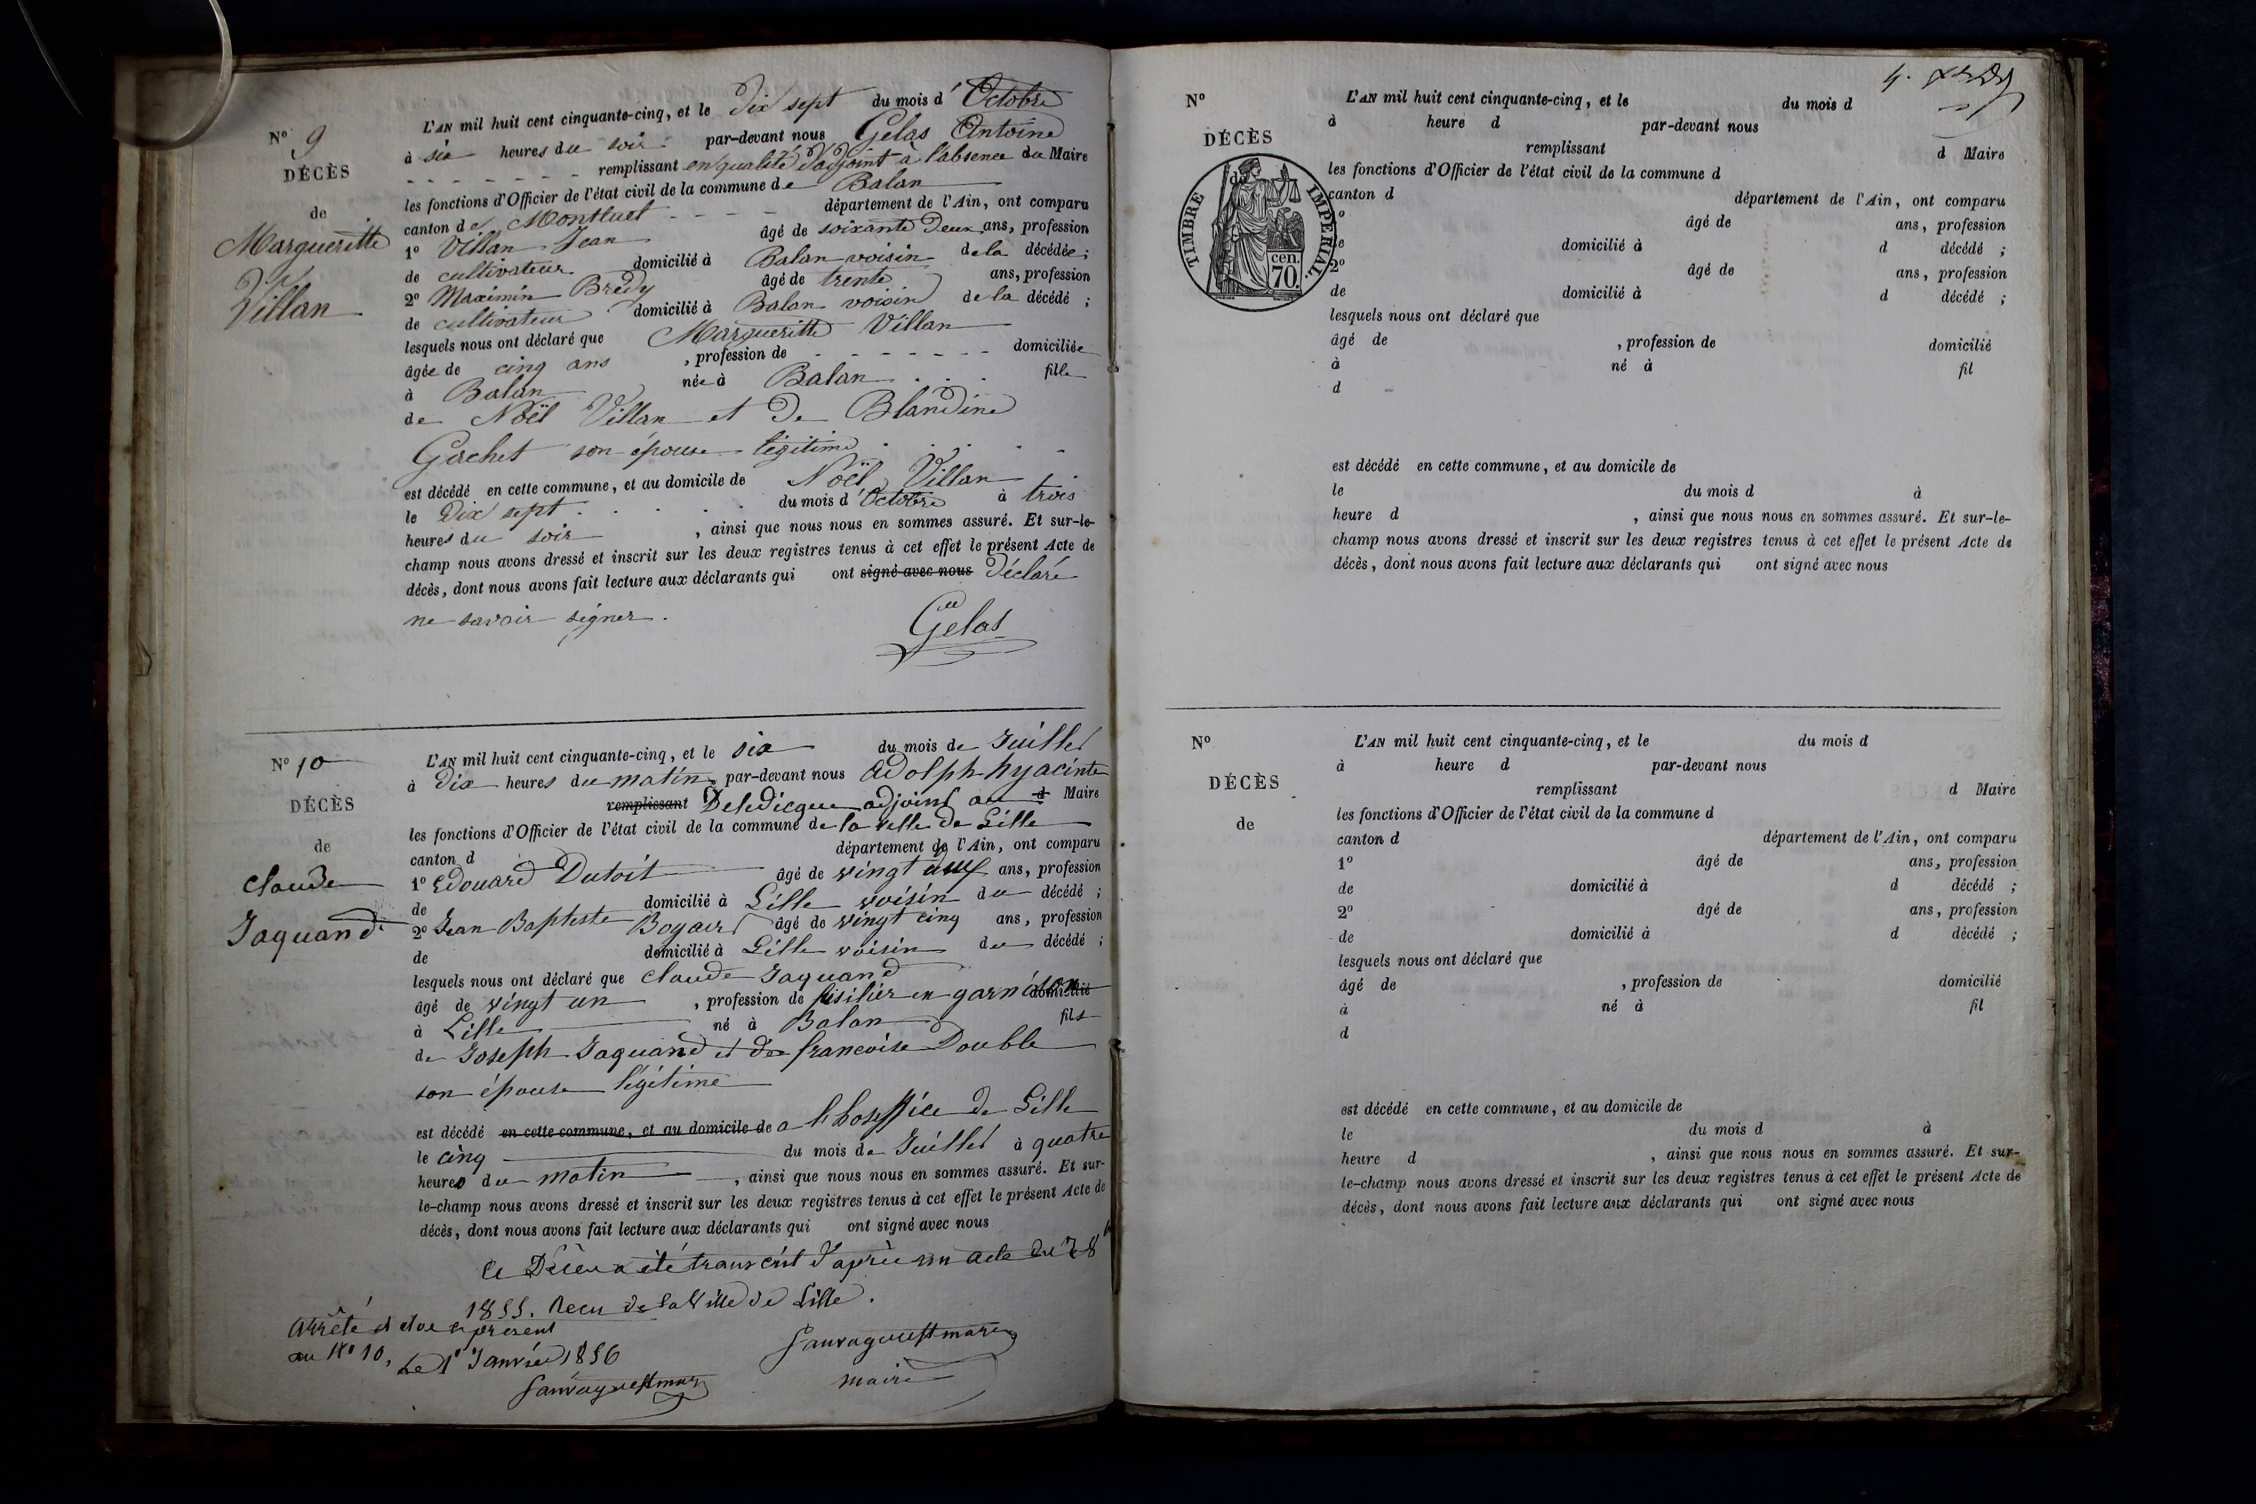 N° 9
DÉCÈS
de
Marguerite
Villan
L'AN mil huit cent cinquante-cinq, et le dix sept du mois d'Octobre
à six heures du soir par-devant nous Gelas Antoine
remplissant en qualité d'adjoint à l'absence du Maire
les fonctions d'Officier de l'état civil de la commune de Balan
canton de Montluel département de l'Ain, ont comparu
1° Villan Jean âgé de soixante deux ans, profession
de cultivateur domicilié à Balan voisin de la décédée ;
2° Maximin Bredy âgé de trente ans, profession
de cultivateur domicilié à Balan voisin de la décédé ;
lesquels nous ont déclaré que Marguerite Villan
âgée de cinq ans , profession de domiciliée
à Balan née à Balan fille
de Noël Villan et de Blandine
Gachet son épouse légitime
est décédé en cette commune, et au domicile de Noël Villan
le dix sept du mois d'Octobre à trois
heures du soir , ainsi que nous nous en sommes assuré. Et sur-le-
champ nous avons dressé et inscrit sur les deux registres tenus à cet effet le présent Acte de
décès, dont nous avons fait lecture aux déclarants qui ont signé avec nous déclaré
ne savoir signer.
Gelas
N° 10
DÉCÈS
de
Claude
Jaquand
L'AN mil huit cent cinquante-cinq, et le six du mois de Juillet
à dix heures du matin par-devant nous Adolph hyacinte
remplissant Deledicque adjoint au d Maire
les fonctions d'Officier de l'état civil de la commune de la ville de Lille
canton d département de l'Ain, ont comparu
1° Edouard Dutoit âgé de vingt neuf ans, profession
de domicilié à Lille voisin du décédé ;
2° Jean Baptiste Boyaer âgé de vingt cinq ans, profession
de domicilié à Lille voisin du décédé ;
lesquels nous ont déclaré que Claude Jaquand
âgé de vingt un , profession de fusilier en garnison domicilié
à Lille né à Balan fils
de Joseph Jaquand et de francoise Double
son épouse légitime
est décédé en cette commune, et au domicile de a l'hospice de Lille
le cinq du mois de Juillet à quatre
heures du matin , ainsi que nous nous en sommes assuré. Et sur-
le-champ nous avons dressé et inscrit sur les deux registres tenus à cet effet le présent Acte de
décès, dont nous avons fait lecture aux déclarants qui ont signé avec nous
Ce Décès a été transcrit d'après un acte du 7 8bre
1855. Recu de la Ville de Lille.
Arrêté et clos le présent
au N° 10, Le 1er Janvier 1856
maire
4.
N°
DÉCÈS
de
TIMBRE IMPERIAL.
cen.
70.
L'AN mil huit cent cinquante-cinq, et le du mois d
à heure d par-devant nous
remplissant d Maire
les fonctions d'Officier de l'état civil de la commune d
canton d département de l'Ain, ont comparu
1° âgé de ans, profession
de domicilié à d décédé ;
2° âgé de ans, profession
de domicilié à d décédé ;
lesquels nous ont déclaré que
âgé de , profession de domicilié
à né à fil
d
est décédé en cette commune, et au domicile de
le du mois d à
heure d , ainsi que nous nous en sommes assuré. Et sur-le-
champ nous avons dressé et inscrit sur les deux registres tenus à cet effet le présent Acte de
décès, dont nous avons fait lecture aux déclarants qui ont signé avec nous
N°
DÉCÈS
de
L'AN mil huit cent cinquante-cinq, et le du mois d
à heure d par-devant nous
remplissant d Maire
les fonctions d'Officier de l'état civil de la commune d
canton d département de l'Ain, ont comparu
1° âgé de ans, profession
de domicilié à d décédé ;
2° âgé de ans, profession
de domicilié à d décédé ;
lesquels nous ont déclaré que
âgé de , profession de domicilié
à né à fil
d
est décédé en cette commune, et au domicile de
le du mois d à
heure d , ainsi que nous nous en sommes assuré. Et sur-
le-champ nous avons dressé et inscrit sur les deux registres tenus à cet effet le présent Acte de
décès, dont nous avons fait lecture aux déclarants qui ont signé avec nous